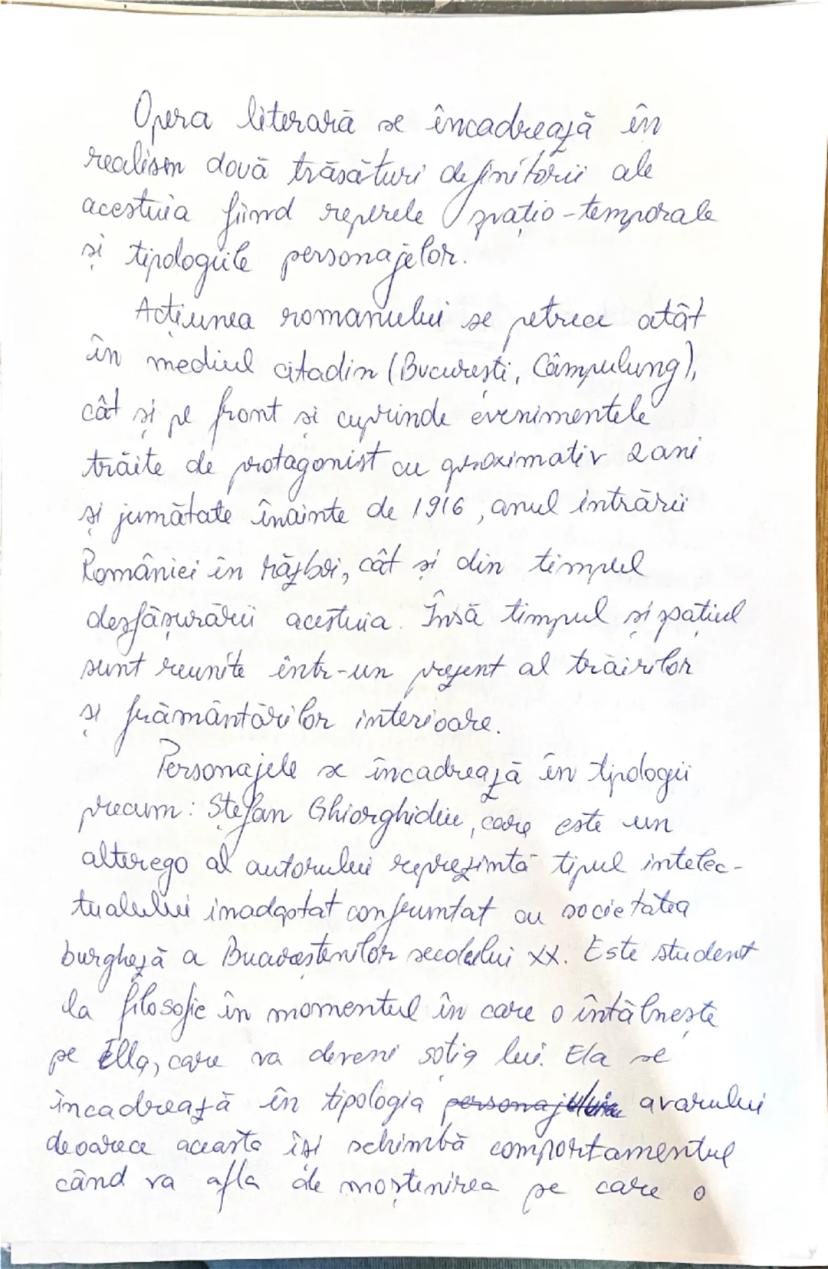 Opera literară se încadrează în
realism două trăsături definitorii ale
acestuia fiind reperele spațio-temporale
și tipologiile personajelor.
Acțiunea romanului se petrece atât
în mediul citadin (București, Câmpulung),
cât și pe front și cuprinde evenimentele
trăite de protagonist cu aproximativ 2 ani
și jumătate înainte de 1916, anul intrării
României în război, cât și din timpul
desfășurării acestuia. Însă timpul și spațiul
sunt reunite într-un prezent al trăirilor
și frământărilor interioare.
Personajele se încadrează în tipologii
precum: Ștefan Ghiorghidiu, care este un
alterego al autorului reprezintă tipul intelec-
tualului inadaptat confruntat cu societatea
burgheză a Bucureștenilor secolului XX. Este student
la filosofie în momentul în care o întâlnește
pe Ella, care va deveni soția lui. Ela se
încadrează în tipologia avarului
deoarece aceasta își schimbă comportamentul
când va afla de moștenirea pe care o